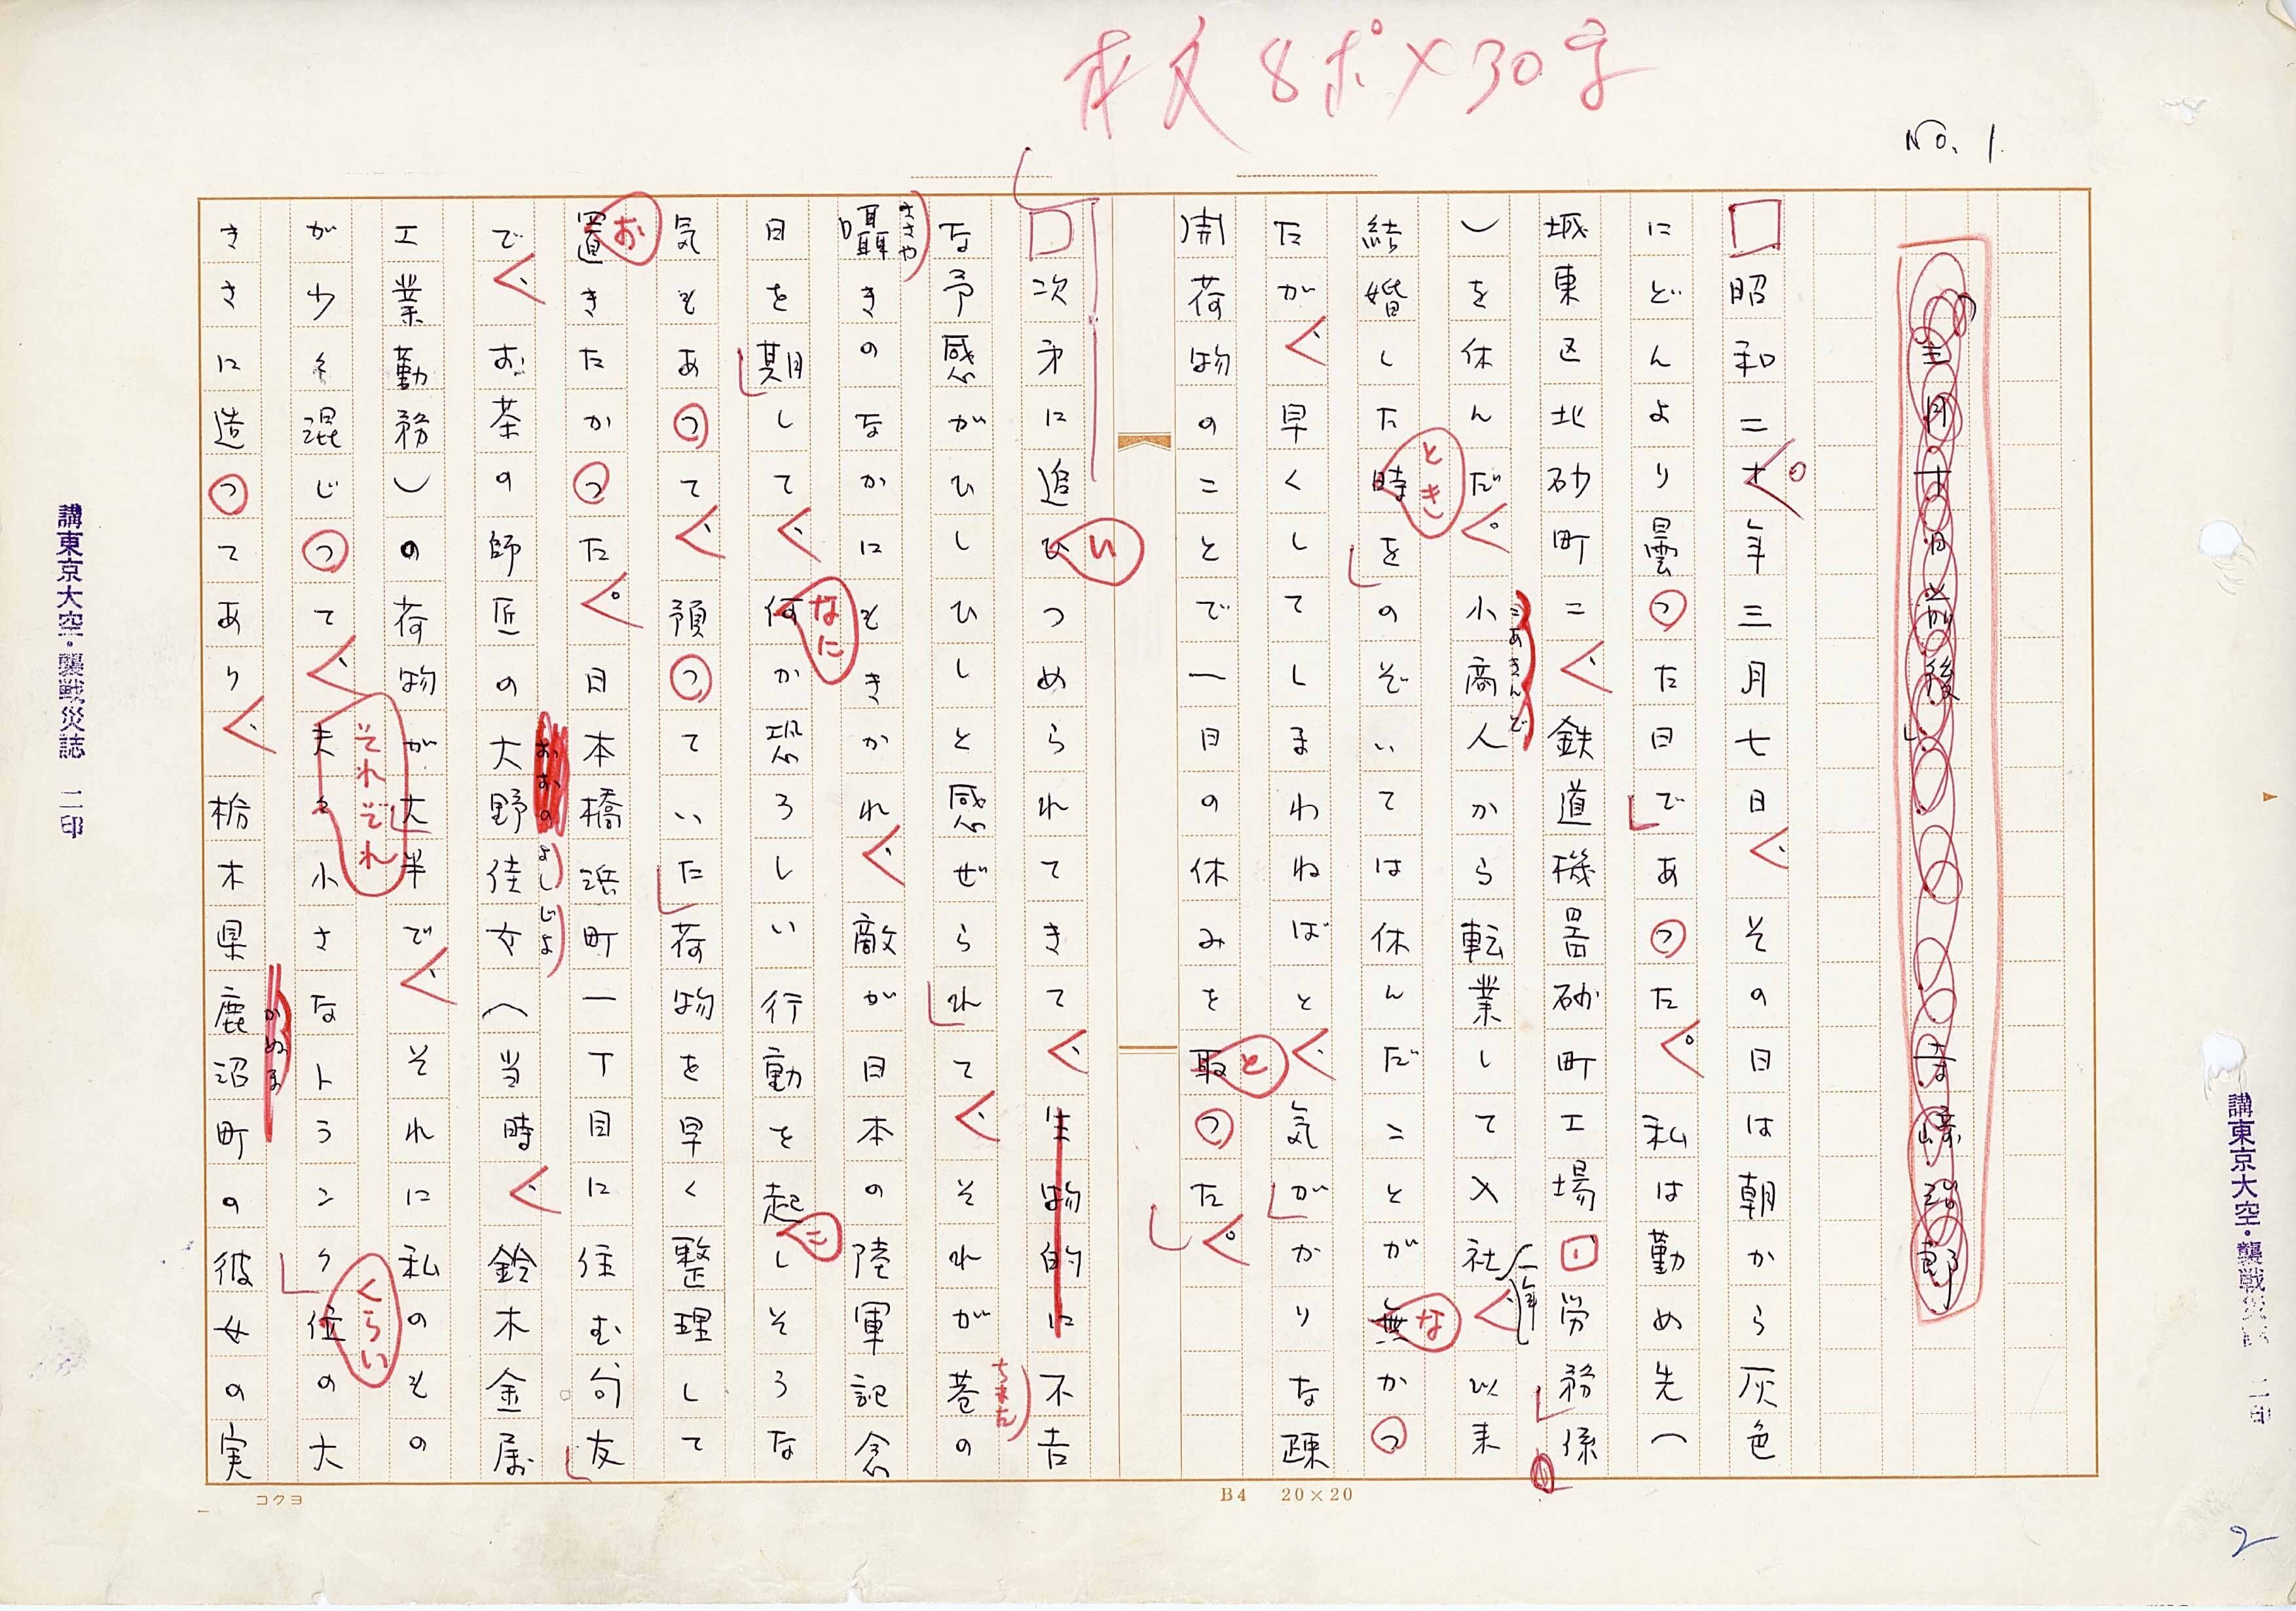 本文8ポ×30字
No. 1
三月十日前後
寺崎謡野
昭和二十年三月七日、その日は朝から灰色
にどんより曇った日であった。私は勤め先(
城東区北砂町二、鉄道機器砂町工場労務係
)を休んだ。小商人から転業して入社(一年)、以来
こあきんど
結婚した時をのぞいては休んだことが無かっ
とき
な
たが、早くしてしまわねばと、気がかりな疎
開荷物のことで一日の休みを取った。
と
次第に追ひつめられてきて、生物的に不吉
い
な予感がひしひしと感ぜられて、それが巷の
ちまた
囁きのなかにもきかれ、敵が日本の陸軍記念
ささや
日を期して、何か恐ろしい行動を起しそうな
なに
こ
気もあって、預っていた荷物を早く整理して
置きたかった。日本橋浜町一丁目に住む句友
お
で、お茶の師匠の大野佳女(当時、鈴木金属
おおの
よしじよ
工業勤務)の荷物が大半で、それに私のもの
が少々混じって、夫々小さなトランク位の大
それぞれ
くらい
きさに造ってあり、栃木県鹿沼町の彼女の実
かぬま
コクヨ
B4 20×20
講東京大空・襲戦災誌 二印
講東京大空・襲戦災誌 二印
2